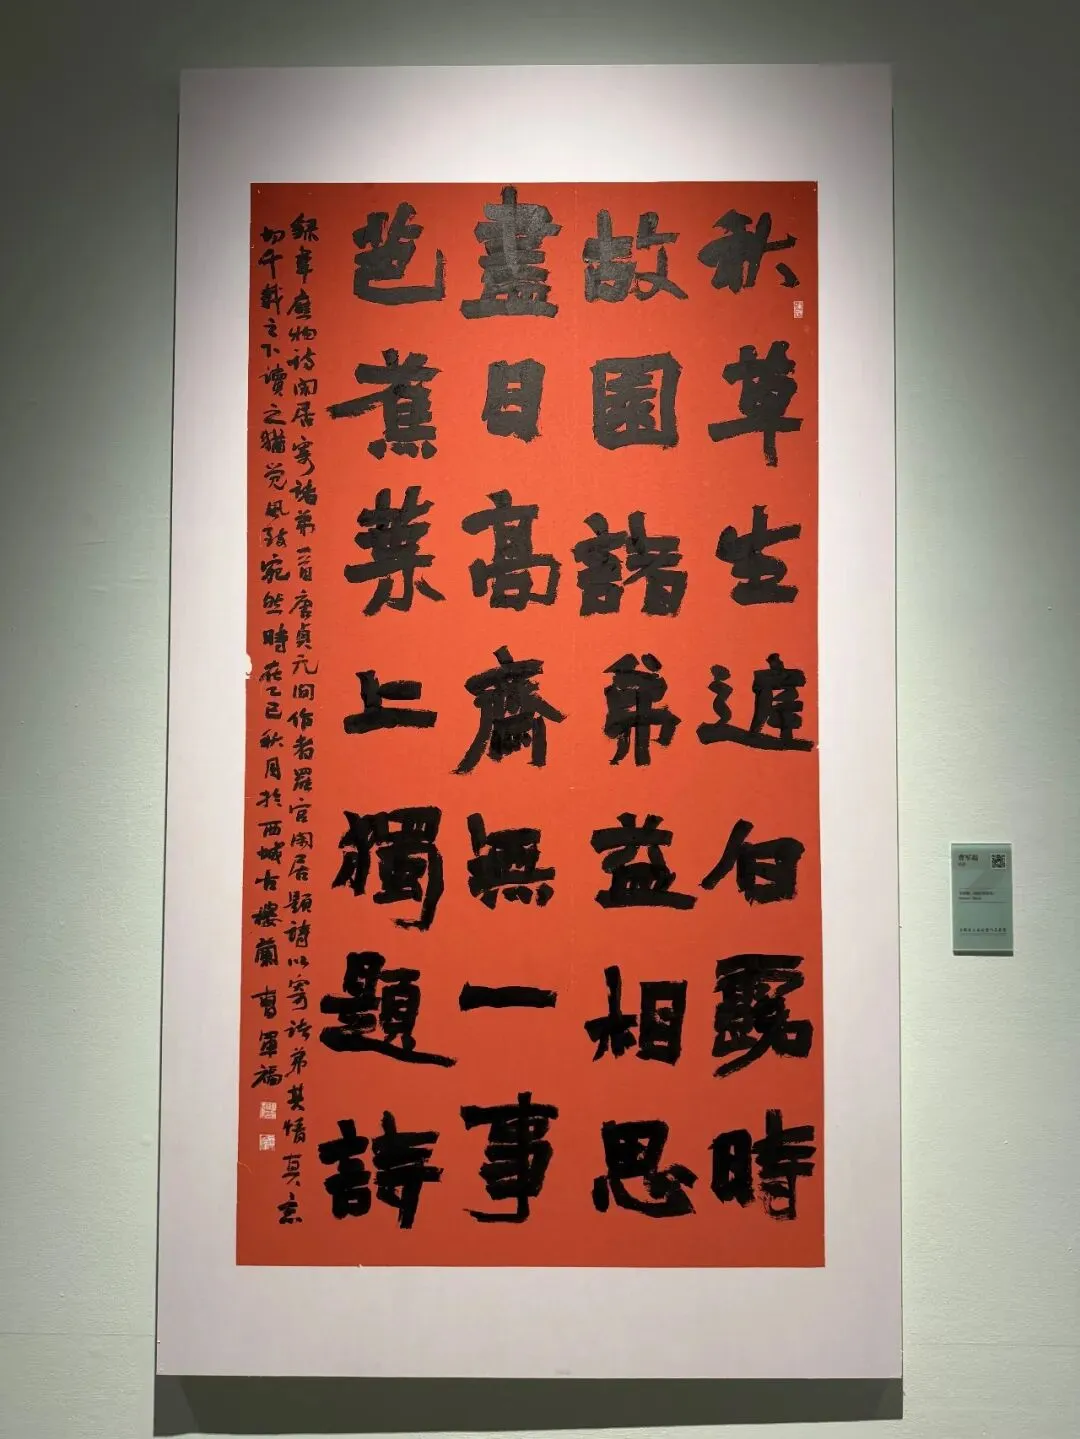 秋草生庭白露時
故園諸弟益相思
盡日高齋無一事
芭蕉葉上獨題詩
録韋應物詩閑居寄諸弟一首唐貞元间作者罷官閑居題詩以寄諸弟其情真意
切千載之下讀之猶觉風致宛然時在乙巳秋月於西城古樓蘭曹軍福
曹军福